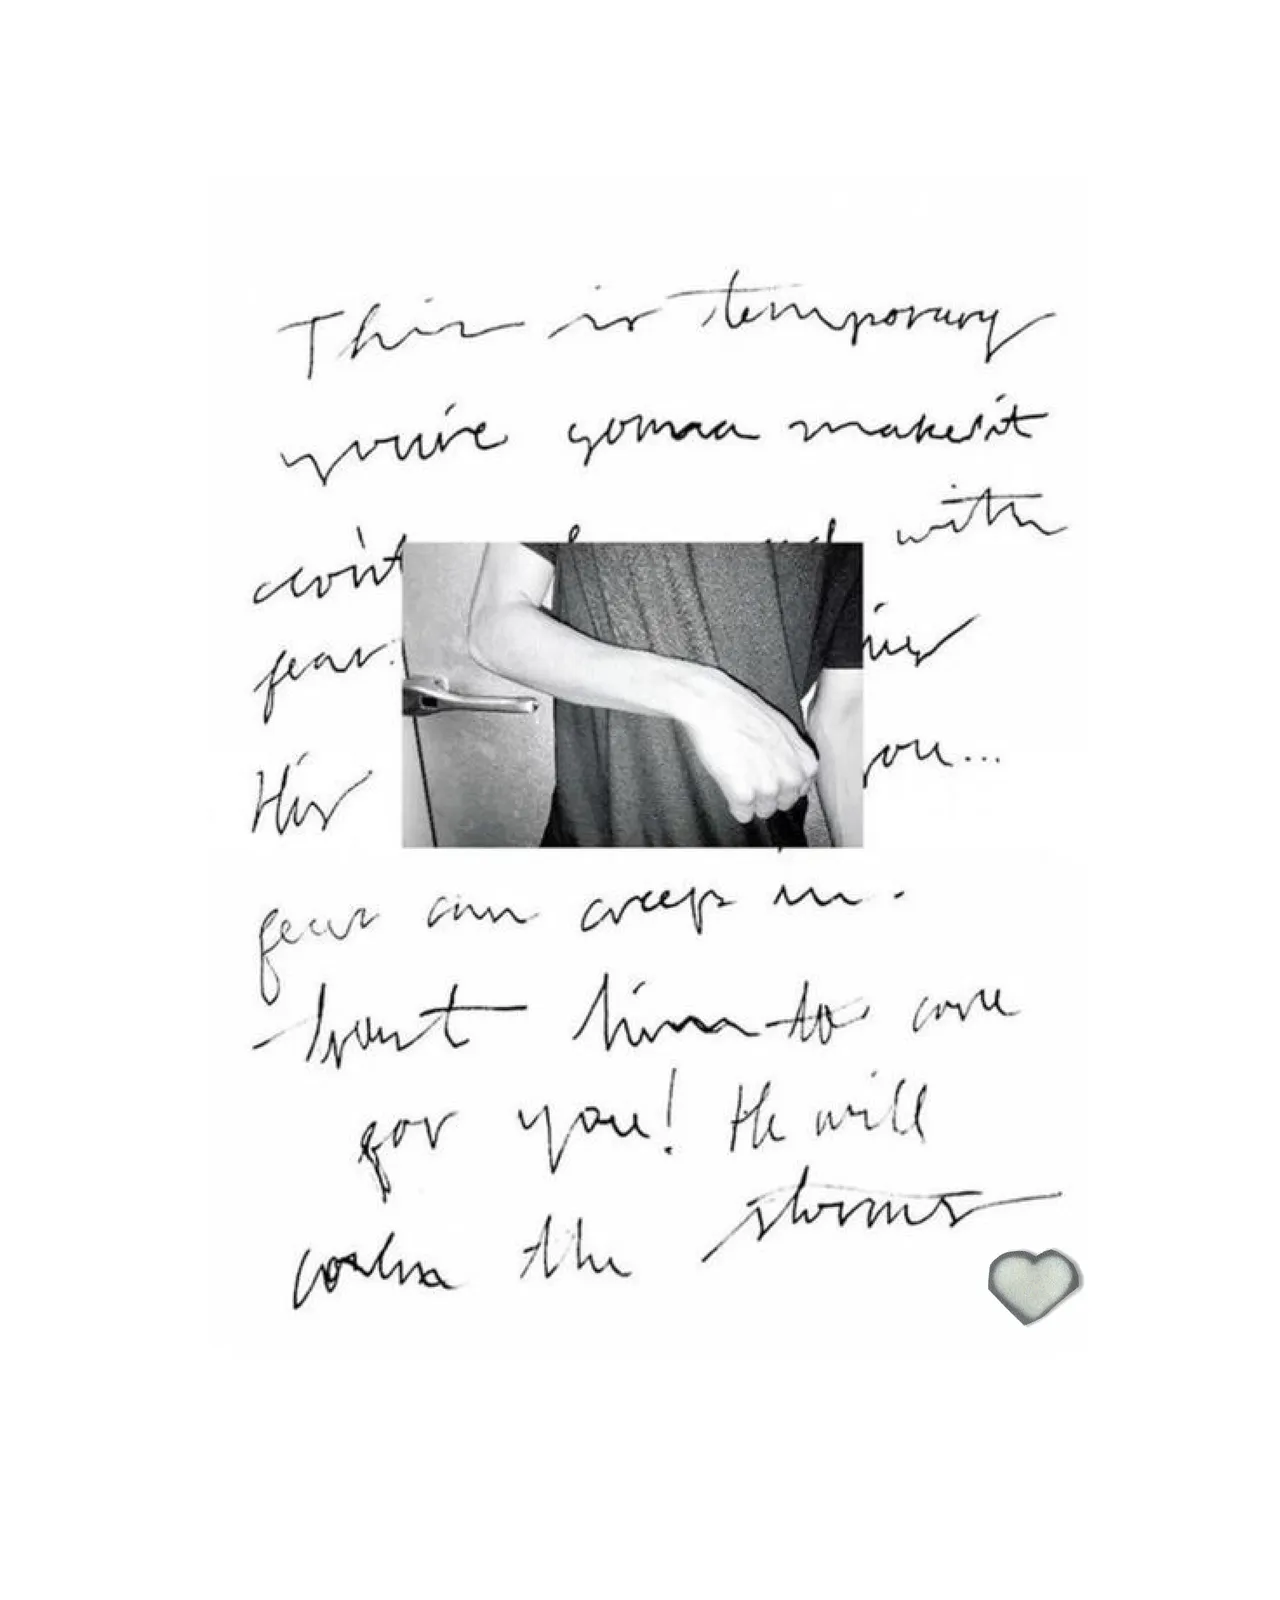 This is temporary
you're gonna make it
don't with
fear.
His
fear can creep in.
trust him to care
for you! He will
calm the storms